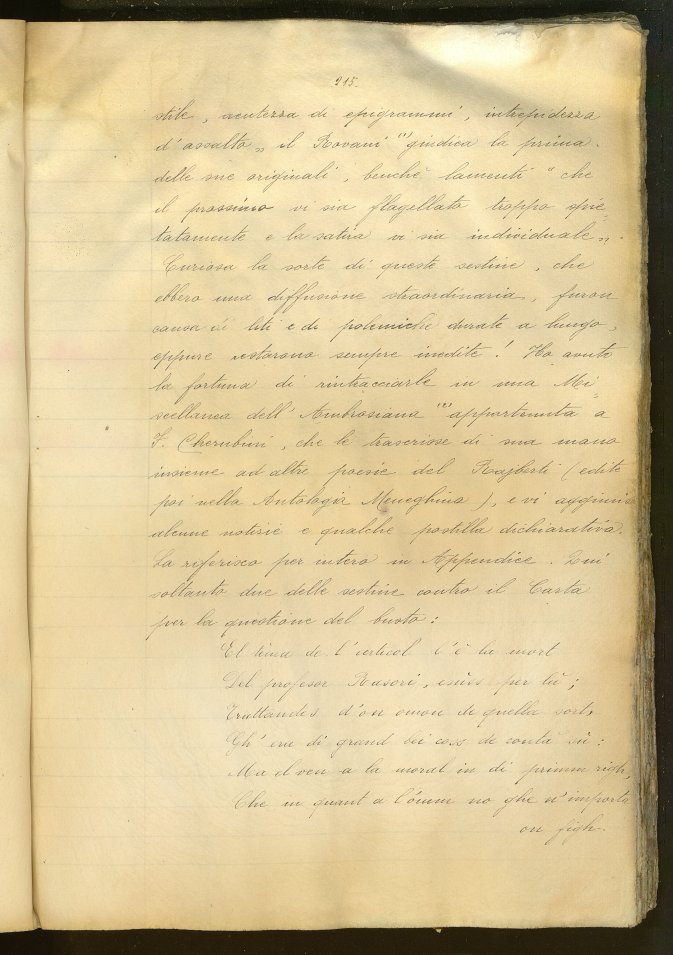 215.
stile, acutezza di epigrammi, intrepidezza
d'assalto„ il Rovani (1) giudica la prima
delle sue originali, benchè lamenti " che
il prossimo vi sia flagellato troppo spie-
tatamente e la satira vi sia individuale„.
Curiosa la sorte di queste sestine, che
ebbero una diffusione straordinaria, furon
causa di liti e di polemiche durate a lungo,
eppure restarono sempre inedite! Ho avuto
la fortuna di rintracciarle in una Mi-
scellanea dell'Ambrosiana (2) appartenuta a
F. Cherubini, che le trascrisse di sua mano
insieme ad altre poesie del Rajberti (edite
poi nella Antologia Meneghina), e vi aggiunse
alcune notizie e qualche postilla dichiarativa.
La riferisco per intero in Appendice. Qui
soltanto due delle sestine contro il Carta
per la questione del busto:
El tèma de l'articol l'è la mort
Del profesor Rasori, per tù;
Trattandes d'on omon de quella sort,
Gh'era di grand bei coss de contà sù:
Ma el ven a la moral in di primm righ,
Che in quant a l'òmm no ghe n'importa
on figh.